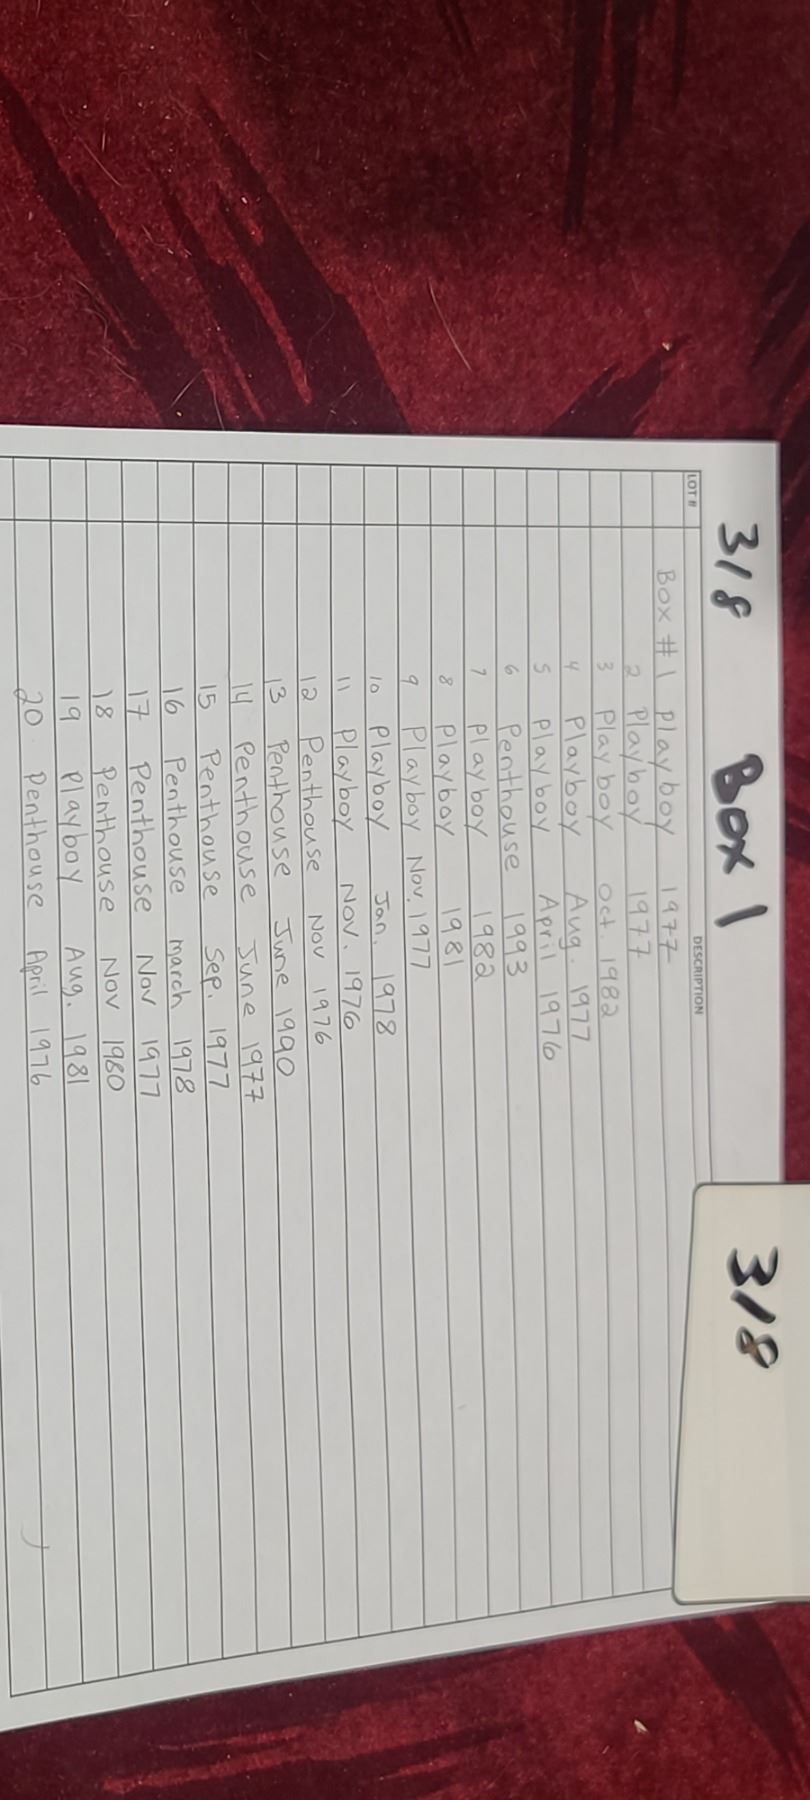 318 Box 1
318
LOT # DESCRIPTION
Box # 1 playboy 1977
2 Playboy 1977
3 Playboy Oct. 1982
4 Playboy Aug. 1977
5 Playboy April 1976
6 Penthouse 1993
7 Playboy 1982
8 Playboy 1981
9 Playboy Nov. 1977
10 Playboy Jan. 1978
11 Playboy Nov. 1976
12 Penthouse Nov 1976
13 Penthouse June 1990
14 Penthouse June 1977
15 Penthouse Sep. 1977
16 Penthouse march 1978
17 Penthouse Nov 1977
18 Penthouse Nov 1980
19 Playboy Aug. 1981
20 Penthouse April 1976